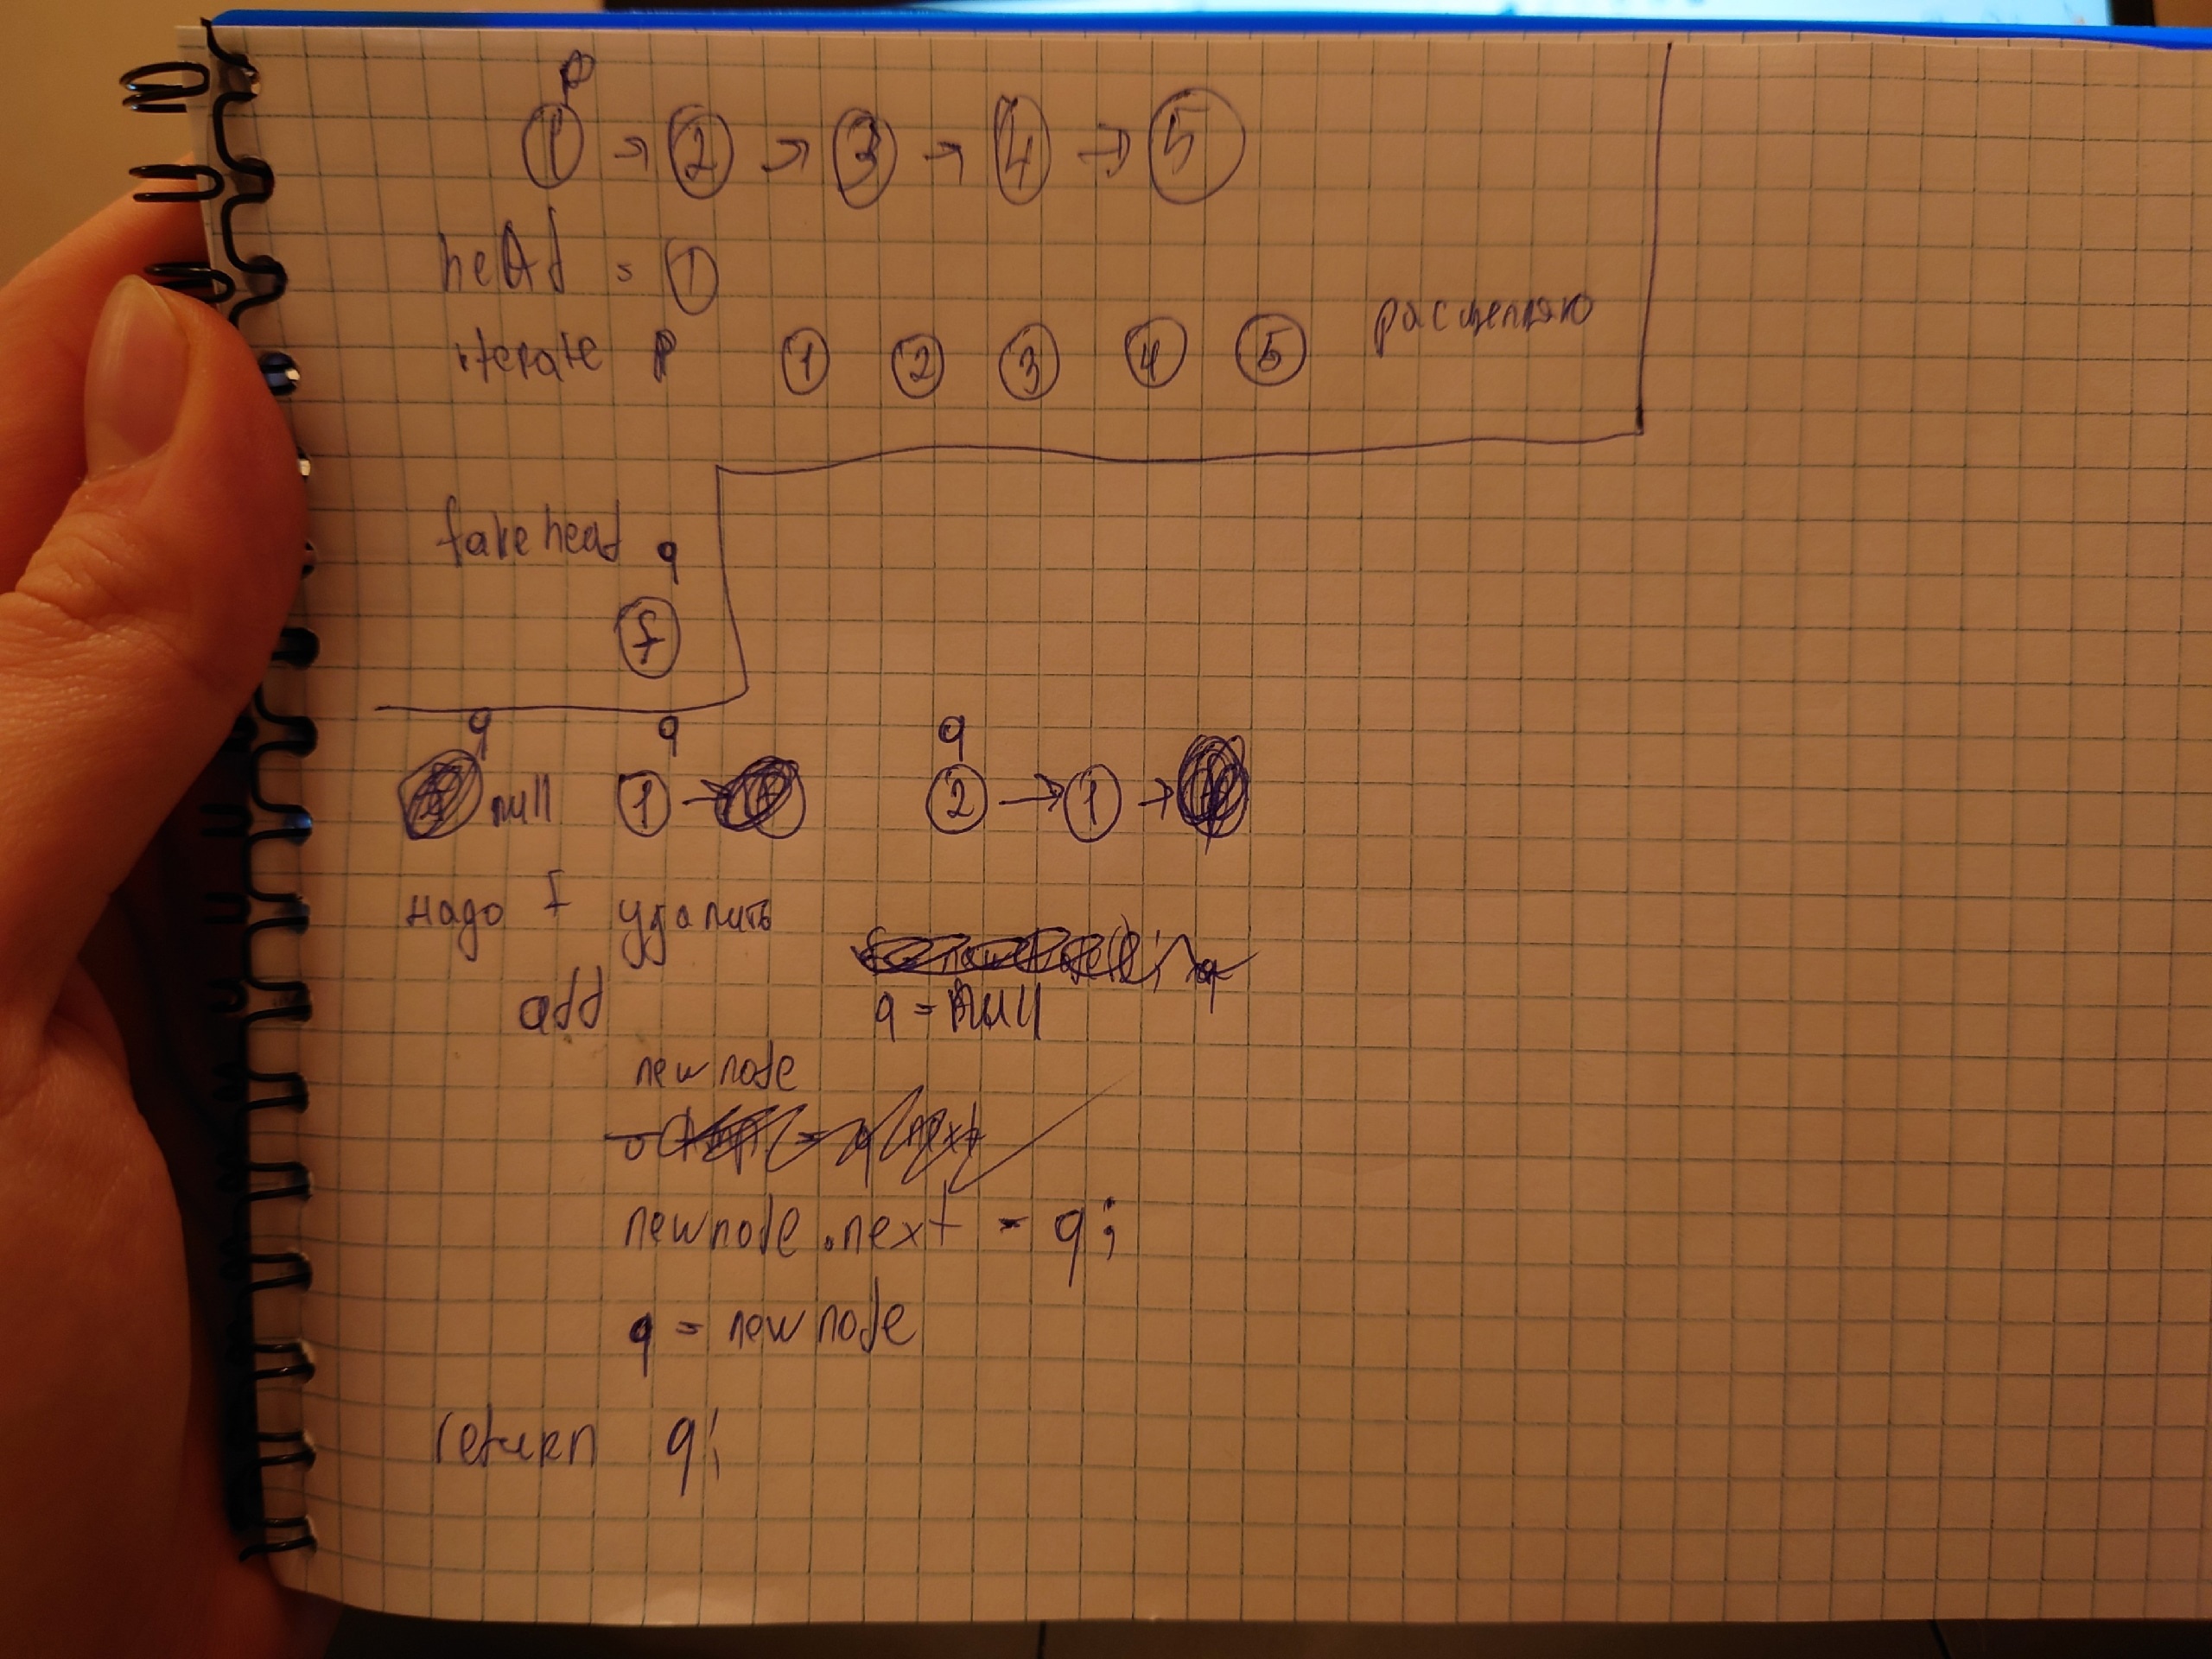 p
1 → 2 → 3 → 4 → 5
head = 1
iterate p 1 2 3 4 5 расщепляю
fake head q
f
q q q
null 1 → 2 → 1 →
надо f удалить
add q = null
new node
newnode.next = q;
q = new node
return q;